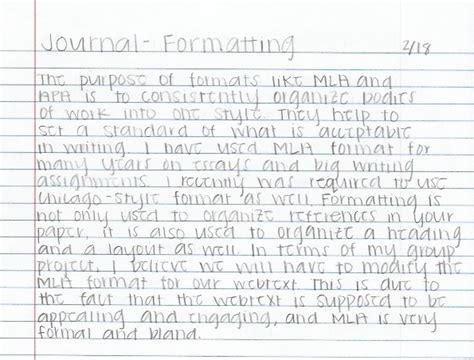 Journal - Formatting 2/18
The purpose of formats like MLA and
APA is to consistently organize bodies
of work into one style. They help to
set a standard of what is acceptable
in writing. I have used MLA format for
many years on essays and big writing
assignments. I recently was required to use
Chicago-style format as well. Formatting is
not only used to organize references in your
paper, it is also used to organize a heading
and a layout as well. In terms of my group
project, I believe we will have to modify the
MLA format for our webtext. This is due to
the fact that the webtext is supposed to be
appealing and engaging, and MLA is very
formal and bland.